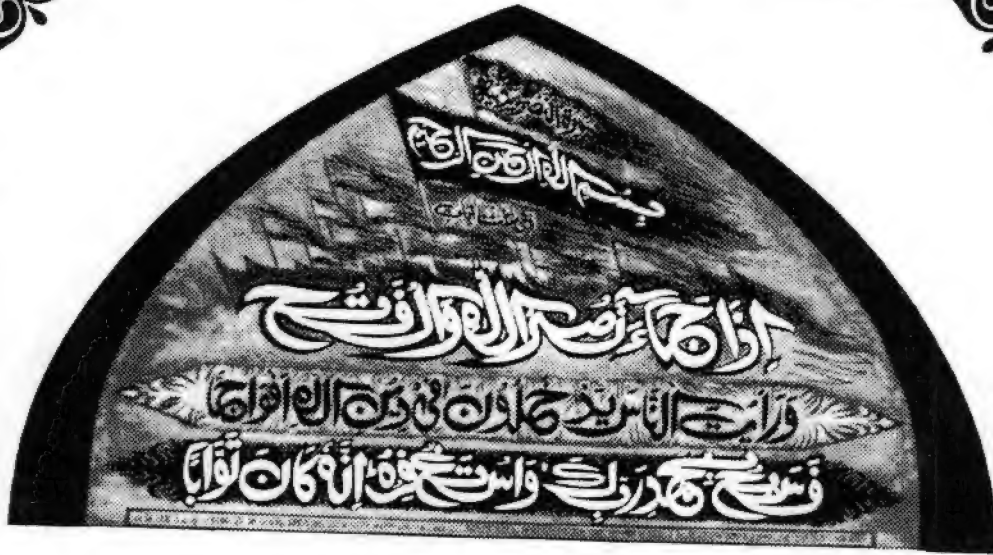 بِسْمِ اللهِ الرَّحْمٰنِ الرَّحِيْمِ
اِذَا جَآءَ نَصْرُ اللهِ وَالْفَتْحُ
وَرَاَيْتَ النَّاسَ يَدْخُلُوْنَ فِىْ دِيْنِ اللهِ اَفْوَاجًا
فَسَبِّحْ بِحَمْدِ رَبِّكَ وَاسْتَغْفِرْهُ اِنَّهٗ كَانَ تَوَّابًا